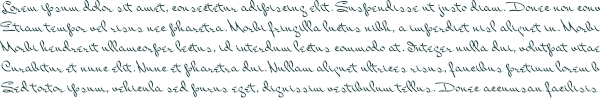 Lorem ipsum dolor sit amet, consectetur adipiscing elit. Suspendisse ut justo diam. Donec non conv
Etiam tempor vel risus nec pharetra. Morbi fringilla luctus nibh, a imperdiet nisl aliquet in. Morbi
Morbi hendrerit ullamcorper lectus, id interdum lectus commodo at. Integer nulla dui, volutpat vitae
Curabitur et nunc elit. Nunc et pharetra dui. Nullam aliquet ultrices risus, faucibus pretium lorem b
Sed tortor ipsum, vehicula sed purus eget, dignissim vestibulum tellus. Donec accumsan facilisis